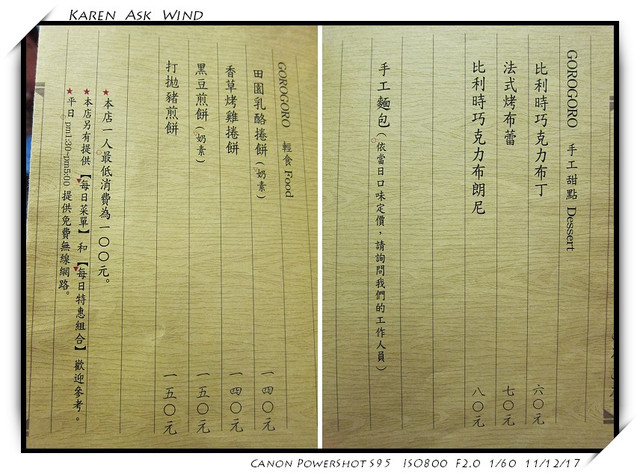 KAREN ASK WIND
GOROGORO 手工甜點 Dessert
比利時巧克力布丁 六〇元
法式烤布蕾 七〇元
比利時巧克力布朗尼 八〇元
手工麵包(依當日口味定價，請詢問我們的工作人員)
GOROGORO 輕食 Food
田園乳酪捲餅(奶素) 一四〇元
香草烤雞捲餅 一四〇元
黑豆煎餅(奶素) 一五〇元
打拋豬煎餅 一五〇元
★本店一人最低消費為一〇〇元。
★本店另有提供【每日菜單】和【每日特惠組合】歡迎參考。
★平日 pm1:30~pm5:00 提供免費無線網路。
CANON POWERSHOT S95 ISO800 F2.0 1/60 11/12/17